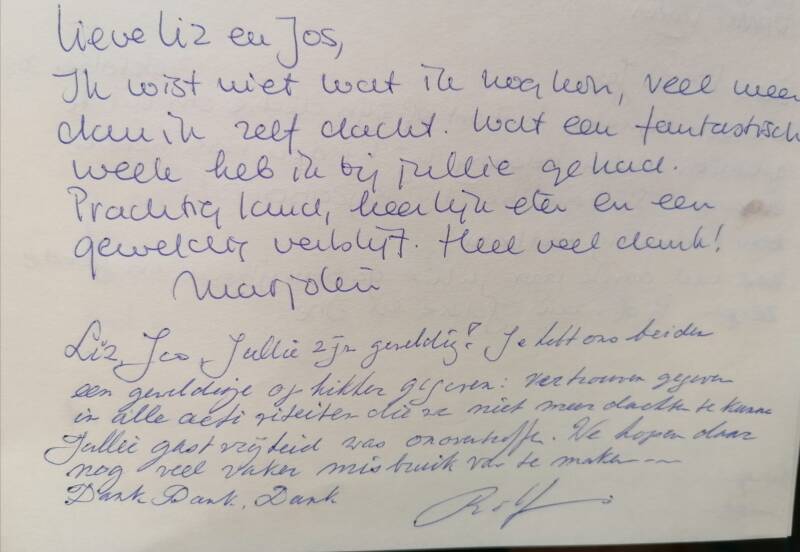 Lieve Liz en Jos,
Ik wist niet wat ik nog kon, veel meer
dan ik zelf dacht. Wat een fantastisch
week heb ik bij jullie gehad.
Prachtig land, heerlijk eten en een
geweldig verblijf. Heel veel dank!
Marjolein
Liz, Jos, Jullie zijn geweldig! Je hebt ons beiden
een geweldige opkikker gegeven: vertrouwen gegeven
in alle activiteiten die we niet meer dachten te kunnen
Jullie gastvrijheid was onovertroffen. We hopen daar
nog veel vaker misbruik van te maken ---
Dank Dank, Dank
Rolf